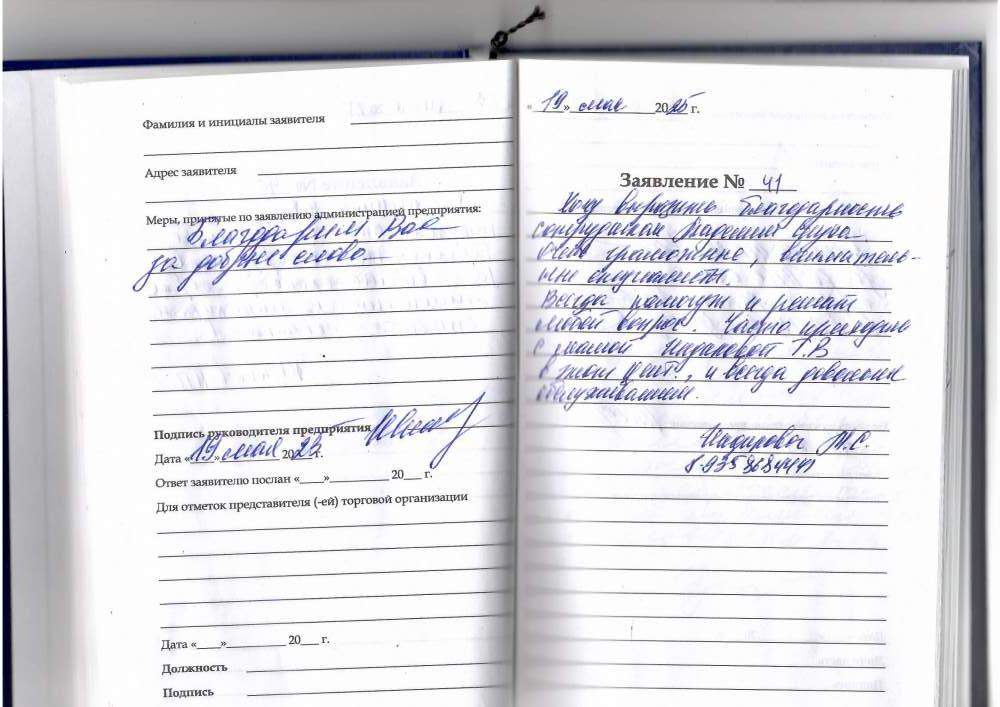 Фамилия и инициалы заявителя
Адрес заявителя
Меры, принятые по заявлению администрацией предприятия:
Благодарим Вас
за добрые слова.
Подпись руководителя предприятия
Дата «19» мая 20 г.
Ответ заявителю послан «___»__________ 20___ г.
Для отметок представителя (-ей) торговой организации
Дата «____»__________ 20___ г.
Должность
Подпись
«19» мая 2025 г.
Заявление № 41
Хочу выразить благодарность
сотрудникам
Очень грамотные, вниматель-
ные специалисты.
Всегда помогут и решат
любой вопрос. Часто приходим
с мамой Т.В
в этот цент., и всегда довольны
обслуживанием.